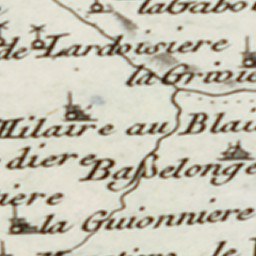 la Gabo
de Lardoisiere
la Grivie
Hilaire au Blai
diere
Basselonge
iere
la Guionniere
le